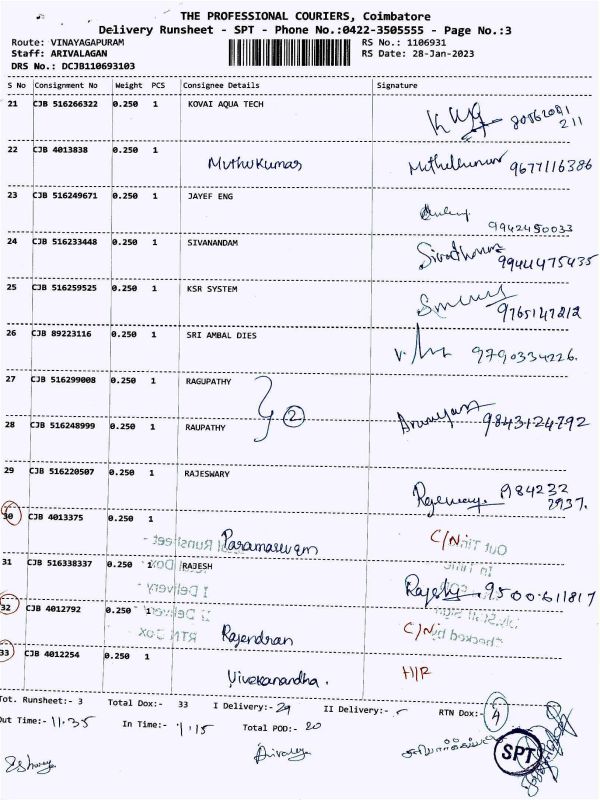 THE PROFESSIONAL COURIERS, Coimbatore
Delivery Runsheet - SPT - Phone No.:0422-3505555 - Page No.:3
Route: VINAYAGAPURAM RS No.: 1106931
Staff: ARIVALAGAN RS Date: 28-Jan-2023
DRS No.: DCJB110693103
S No Consignment No Weight PCS Consignee Details Signature
21 CJB 516266322 0.250 1 KOVAI AQUA TECH
22 CJB 4013838 0.250 1
Muthukumar 9677116386
23 CJB 516249671 0.250 1 JAYEF ENG
9942450033
24 CJB 516233448 0.250 1 SIVANANDAM
99444475435
25 CJB 516259525 0.250 1 KSR SYSTEM
9765147212
26 CJB 89223116 0.250 1 SRI AMBAL DIES
9790334226.
27 CJB 516299008 0.250 1 RAGUPATHY
2
28 CJB 516248999 0.250 1 RAUPATHY
9843124792
29 CJB 516220507 0.250 1 RAJESWARY
984232
2937.
30 CJB 4013375 0.250 1
Paramasivam C/N
31 CJB 516338337 0.250 1 RAJESH
Rajesh 9500611817
32 CJB 4012792 0.250 1
Rajendran C/N
33 CJB 4012254 0.250 1
Vivekanandha. H/R
Tot. Runsheet:- 3 Total Dox:- 33 I Delivery:- 29 II Delivery:- RTN Dox:- 4
Out Time:- 11.35 In Time:- 1.15 Total POD:- 20
SPT